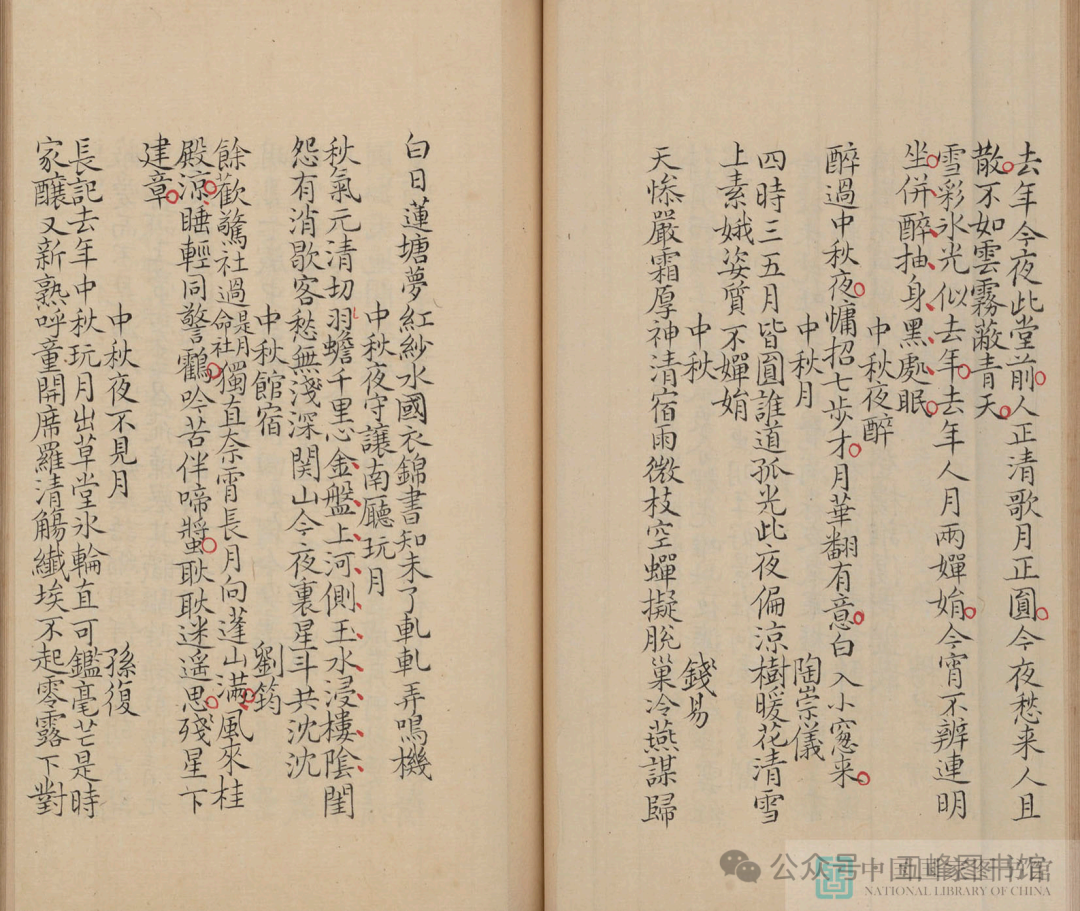 去年今夜此堂前人正清歌月正圓今夜愁来人且
散不如雲霧蔽青天
雪彩氷光似去年去年人月兩嬋娟今宵不辨連明
坐併醉抽身黑處眠
中秋夜醉
醉過中秋夜慵招七歩才月華翻有意白入小窓来
中秋月 陶崇儀
四時三五月皆圓誰道孤光此夜偏涼樹暖花清雪
上素娥姿質不嬋娟
中秋 錢易
天慘嚴霜厚神清宿雨微枝空蟬擬脫巢冷燕謀歸
白日蓮塘夢紅紗水國衣錦書知未了軋軋弄鳴機
中秋夜守讓南廳玩月
秋氣元清切羽蟾千里心金盤上河側玉水浸樓陰閨
怨有消歇客愁無淺深関山今夜裏星斗共沈沈
中秋館宿 劉筠
餘歡驚社過是月命社獨直奈宵長月向蓬山滿風來桂
殿涼睡輕同警鶴吟苦伴啼螿耿耿迷遥思殘星下
建章
中秋夜不見月 孫復
長記去年中秋玩月出草堂氷輪直可鑑毫芒是時
家釀又新熟呼童開席羅清觴纖埃不起零露下對
公众号
五峰图书馆
中国国家图书馆
NATIONAL LIBRARY OF CHINA